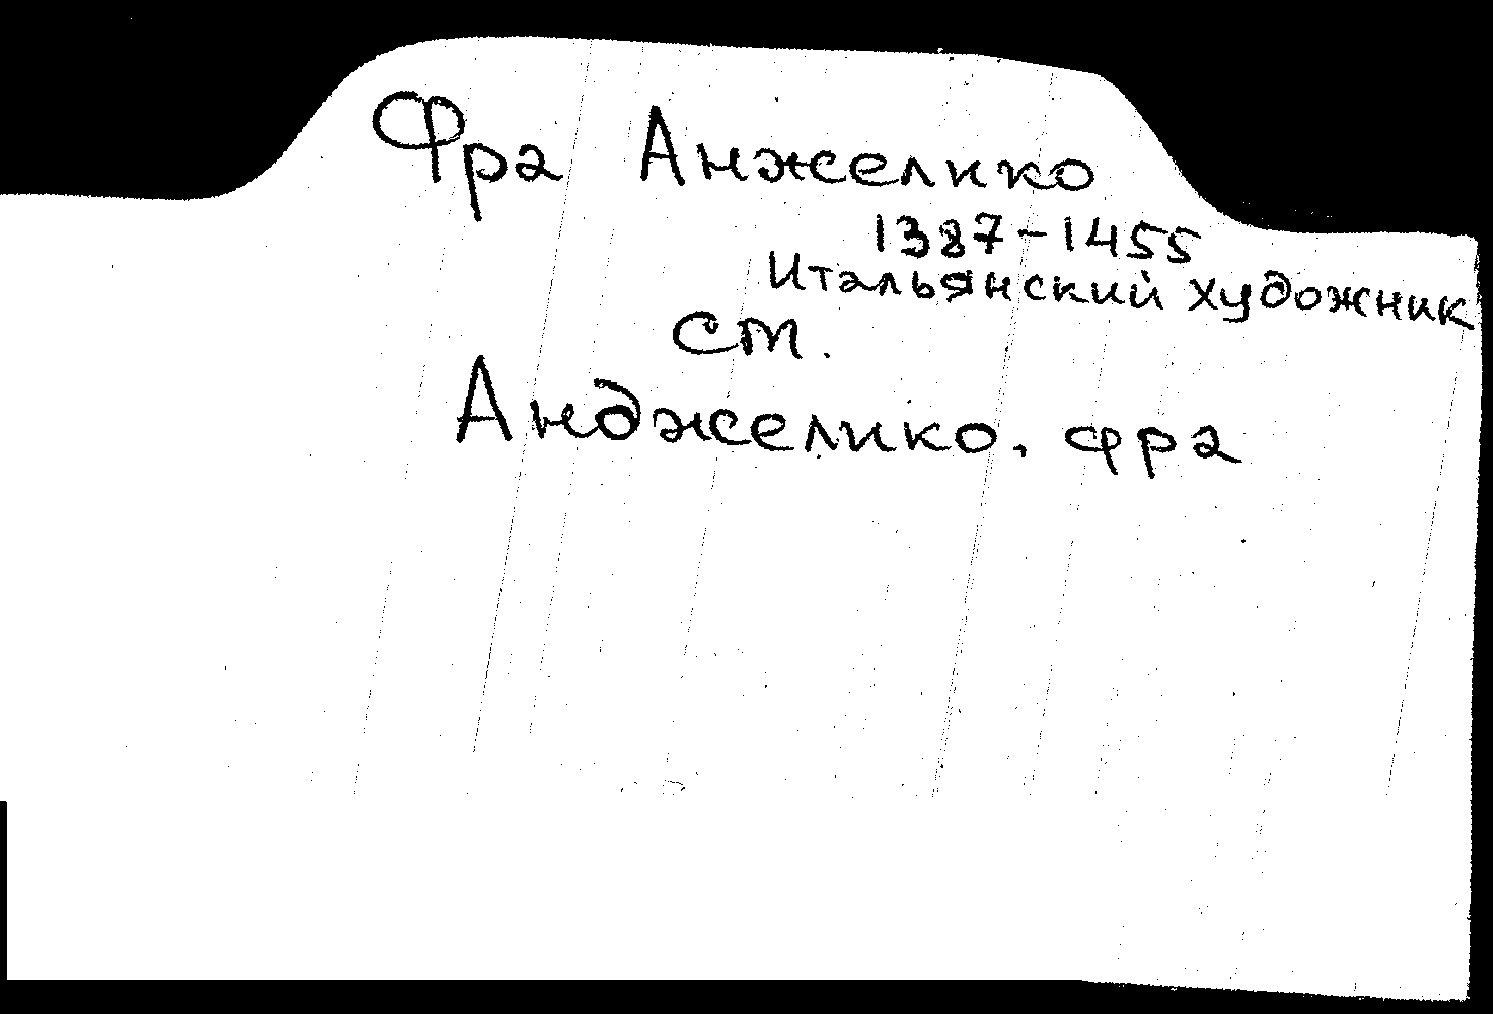 Фра Анжелико
1387-1455
Итальянский художник
см.
Анджелико, фра